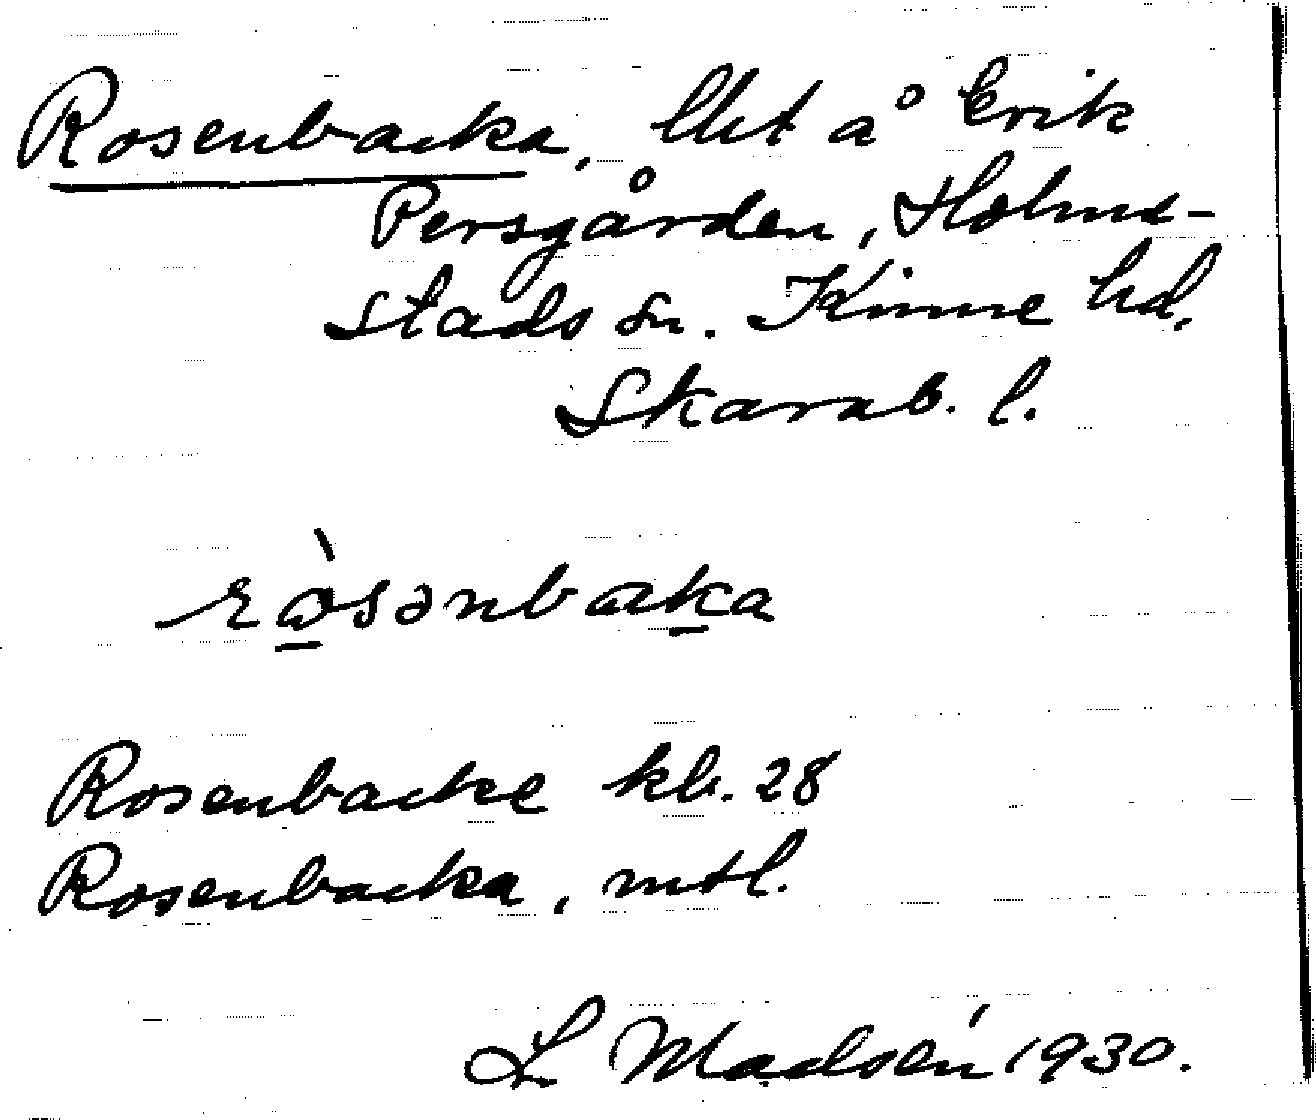 Rosenbacka, llt å Erik
Persgården, Holme-
stads sn. Kinne hd,
Skarab. l.
ròsənbaka
Rosenbacke kb. 28
Rosenbacka, mtl.
L Madsén 1930.